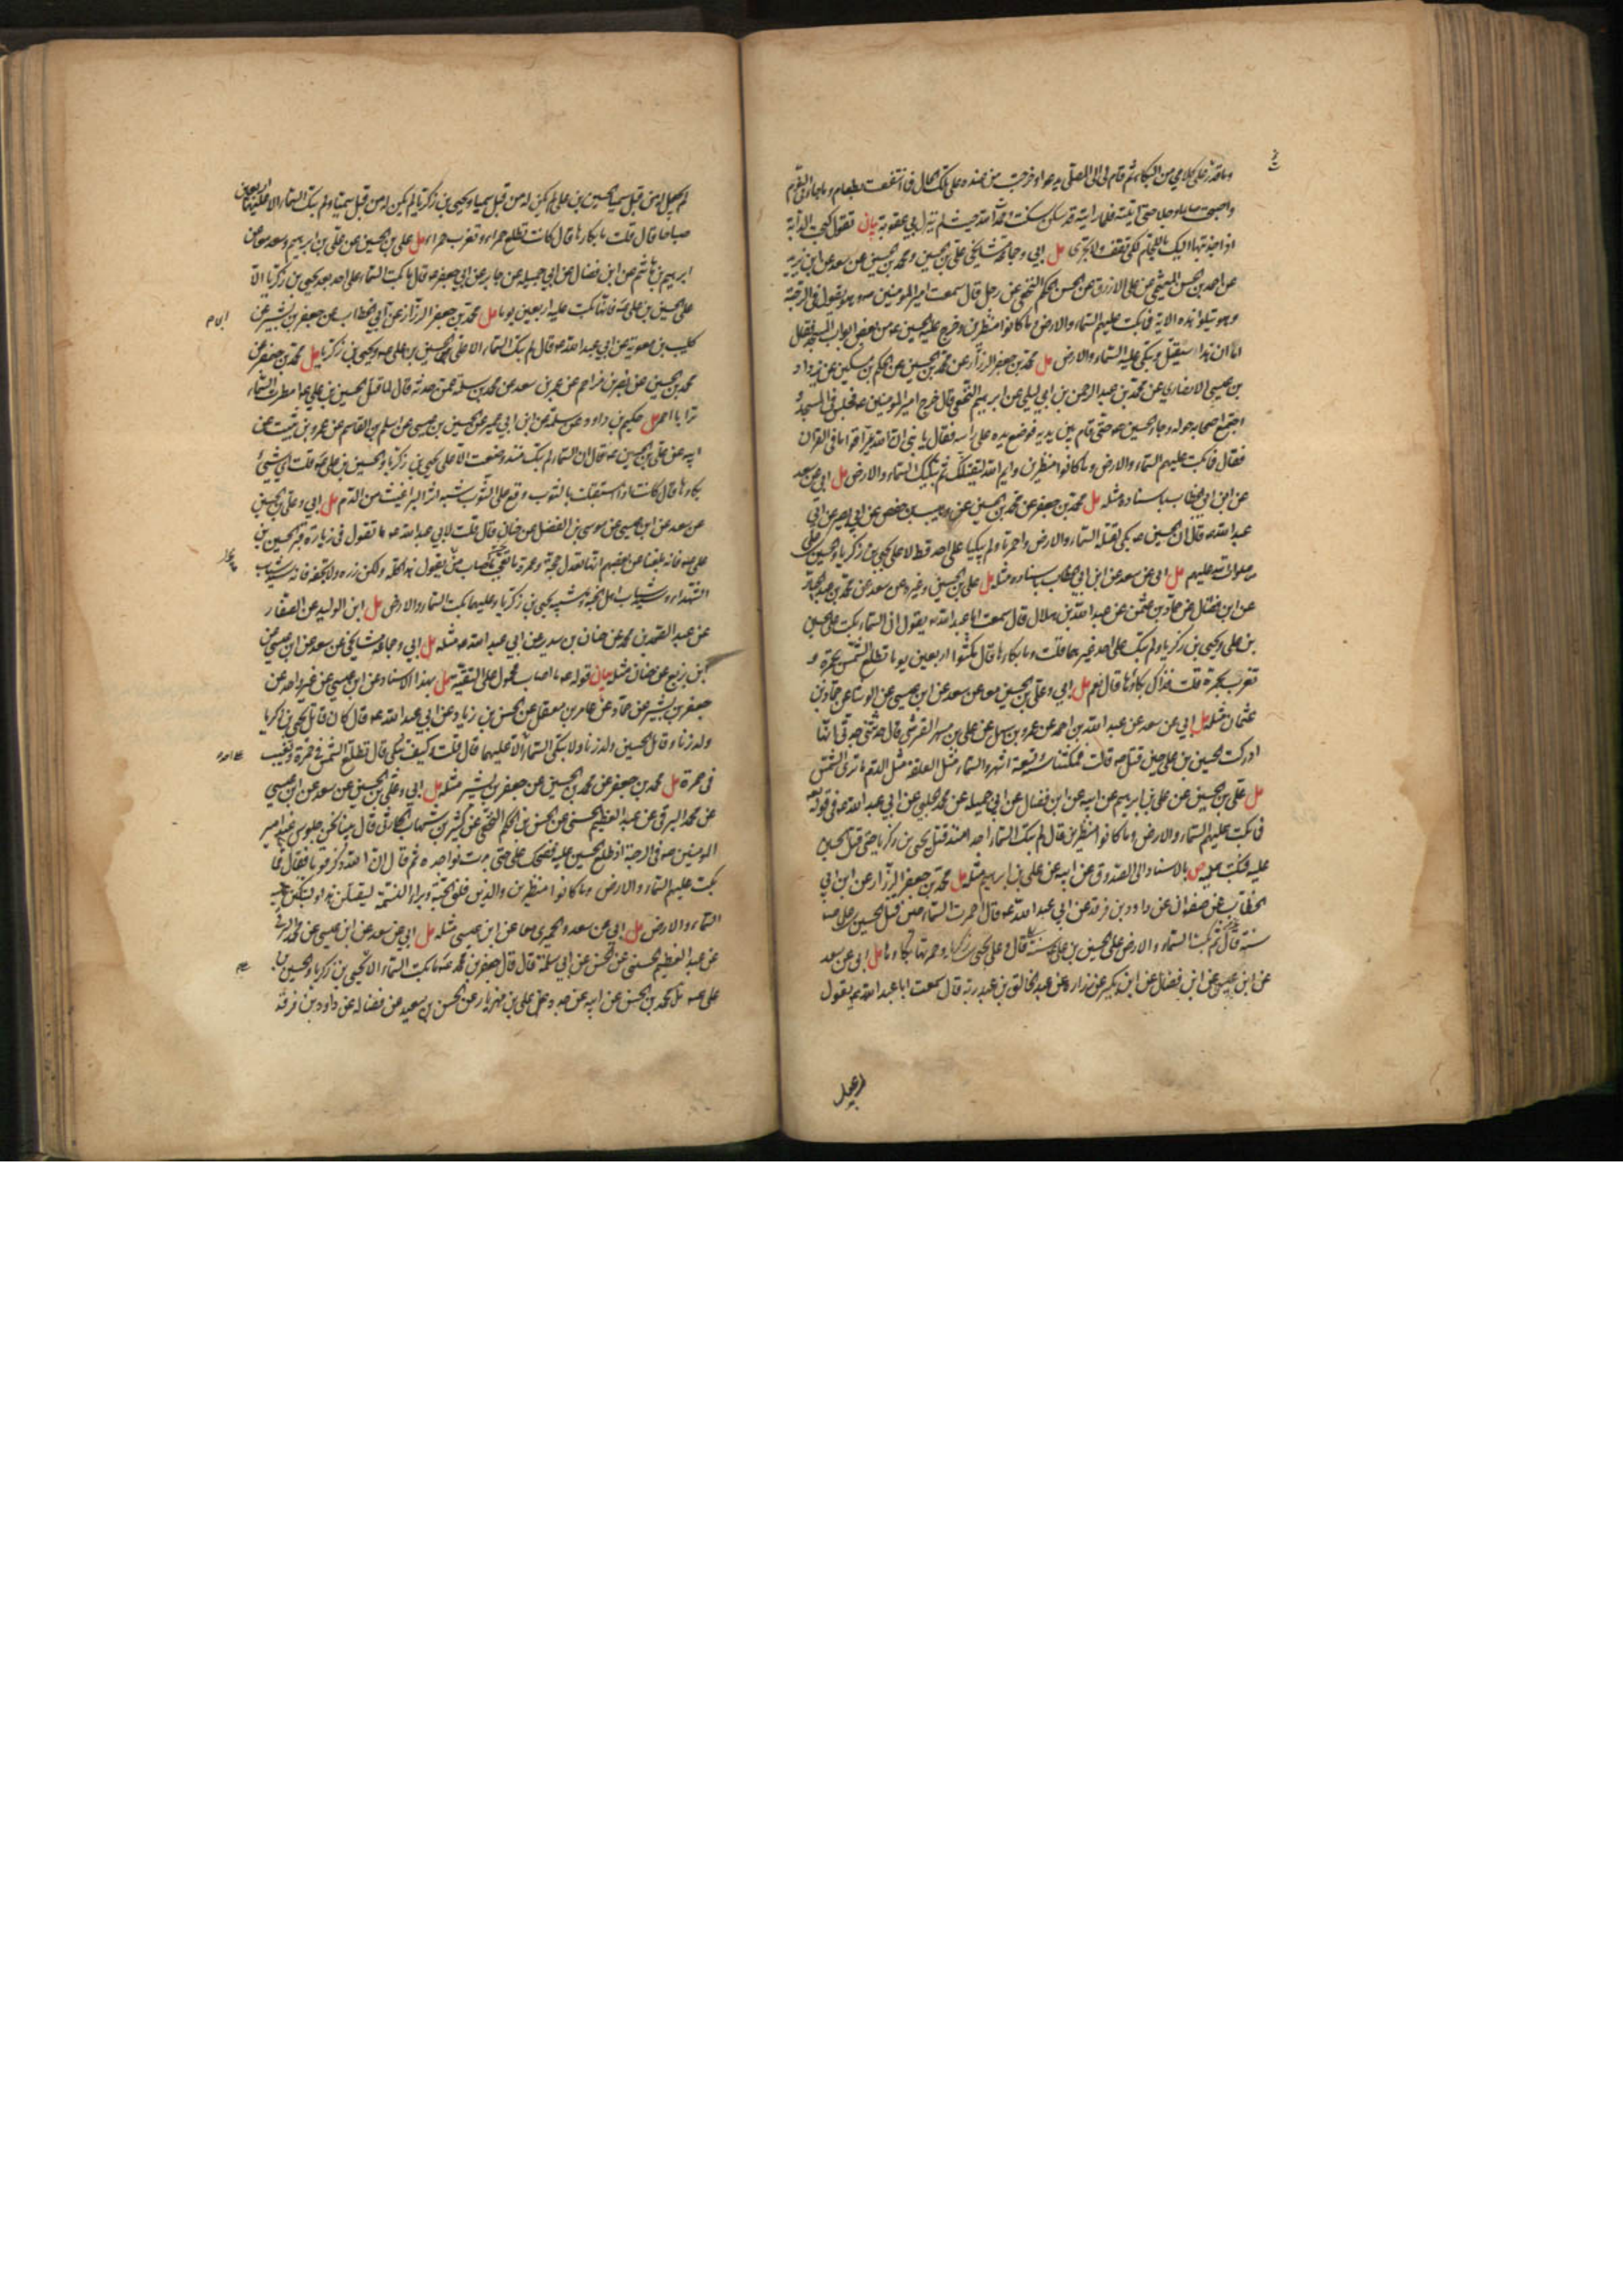 وما قدر على كلامي من البكاء ثم قام الى المصلى يدعو وخرجت من عنده على تلك الحال فما انتفعت بطعام وما جاءني النوم
واصبحت صائما وجلا حتى اتيته فلما رايته قد سكن سكنت وحمدت الله حيث لم تنزل بي عقوبة بيان تقول كبحت الدابة
اذا جذبتها اليك باللجام لكي تقف ولا تجري مل ابي وجماعة مشايخي علي بن الحسين ومحمد بن الحسن عن سعد عن ابن يزيد
عن احمد بن الحسن الميثمي عن علي الازرق عن الحسن بن الحكم النخعي عن رجل قال سمعت امير المؤمنين وهو يقول في الرحبة
وهو يتلو هذه الاية فما بكت عليهم السماء والارض وما كانوا منظرين وخرج عليه الحسين من بعض ابواب المسجد فقال
اما ان هذا سيقتل وتبكي عليه السماء والارض مل محمد بن جعفر الرزاز عن محمد بن الحسين عن الحكم بن مسكين عن داود
بن عيسى الانصاري عن محمد بن عبد الرحمن بن ابي ليلى عن ابراهيم النخعي قال خرج امير المؤمنين فجلس في المسجد و
اجتمع اصحابه حوله وجاء الحسين حتى قام بين يديه فوضع يده على راسه فقال يا بني ان الله عير اقواما في القران
فقال فما بكت عليهم السماء والارض وما كانوا منظرين وايم الله ليقتلنك ثم تبكيك السماء والارض مل ابي عن سعد
عن ابن ابي الخطاب باسناده مثله مل محمد بن جعفر عن محمد بن الحسين عن وهيب بن حفص عن ابي بصير عن ابي
عبد الله قال ان الحسين بكى لقتله السماء والارض واحمرتا ولم تبكيا على احد قط الا على يحيى بن زكريا والحسين بن علي
صلوات الله عليهم مل ابي عن سعد عن ابن ابي الخطاب باسناده مثله مل علي بن الحسين وغيره عن سعد عن محمد بن عبد الجبار
عن ابن فضال عن حماد بن عثمن عن عبد الله بن هلال قال سمعت ابا عبد الله يقول ان السماء بكت على الحسين
بن علي ويحيى بن زكريا ولم تبك على احد غيرهما قلت وما بكاؤها قال مكثوا اربعين يوما تطلع الشمس بحمرة و
تغرب بحمرة قلت فذاك بكاؤها قال نعم مل ابي وعلي بن الحسين معا عن سعد عن ابن عيسى عن الوشاء عن حماد بن
عثمان مثله مل ابي عن سعد عن عبد الله بن احمد عن عمرو بن سهل عن علي بن مسهر القرشي قال حدثتني جدتي انها
ادركت الحسين بن علي حين قتل قالت فمكثنا سنة وتسعة اشهر والسماء مثل العلقة مثل الدم ما ترى الشمس
مل علي بن الحسين عن علي بن ابراهيم عن ابيه عن ابن فضال عن ابي جميلة عن محمد الحلبي عن ابي عبد الله في قوله تعالى
فما بكت عليهم السماء والارض وما كانوا منظرين قال لم تبك السماء احدا منذ قتل يحيى بن زكريا حتى قتل الحسين
عليه فبكت عليه ص بالاسناد الى الصدوق عن ابيه عن علي بن ابراهيم مثله مل محمد بن جعفر الرزاز عن ابن ابي
الخطاب عن صفوان عن داود بن فرقد عن ابي عبد الله قال احمرت السماء حين قتل الحسين بن علي
سنة قال ثم بكتا السماء والارض على الحسين بن علي سنة قال وعلى يحيى بن زكريا وحمرتها بكاؤها مل ابي عن سعد
عن ابن عيسى عن ابن فضال عن ابن بكير عن زرارة عن عبد الخالق بن عبد ربه قال سمعت ابا عبد الله يقول
لم يجعل له من قبل سميا الحسين بن علي لم يكن له من قبل سميا ويحيى بن زكريا لم يكن له من قبل سميا ولم تبك السماء الا عليهما اربعين
صباحا قال قلت ما بكاؤها قال كانت تطلع حمراء وتغرب حمراء مل علي بن الحسين عن علي بن ابراهيم وسعد معا عن
ابراهيم بن هاشم عن ابن فضال عن ابي جميلة عن جابر عن ابي جعفر قال ما بكت السماء على احد بعد يحيى بن زكريا الا
على الحسين بن علي فانها بكت عليه اربعين يوما مل محمد بن جعفر الرزاز عن ابي الخطاب عن جعفر بن بشير عن
كليب بن معوية عن ابي عبد الله قال لم تبك السماء الا على الحسين بن علي ويحيى بن زكريا مل محمد بن جعفر عن
محمد بن الحسين عن نصر بن مزاحم عن عمر بن سعد عن محمد بن سلمة عمن حدثه قال لما قتل الحسين بن علي مطرت السماء
ترابا احمر مل حكيم بن داود عن سلمة عن ابن ابي عمير عن الحسين بن عيسى عن اسلم بن القاسم عن عمرو بن ثبيت عن
ابيه عن علي بن الحسين قال ان السماء لم تبك منذ وضعت الا على يحيى بن زكريا والحسين بن علي قلت اي شيء
بكاؤها قال كانت اذا استقبلت بالثوب وقع على الثوب شبه اثر البراغيث من الدم مل ابي وعلي بن الحسين
عن سعد عن ابن عيسى عن موسى بن الفضل عن حنان قال قلت لابي عبد الله ما تقول في زيارة قبر الحسين بن
علي فانه بلغنا عن بعضهم انها تعدل حجة وعمرة قال لا تعجب ما اصاب من يقول هذا كله ولكن زره ولا تجفه فانه سيد شباب
الشهداء وسيد شباب اهل الجنة وشبيه يحيى بن زكريا وعليهما بكت السماء والارض مل ابن الوليد عن الصفار
عن عبد الصمد بن محمد عن حنان بن سدير عن ابي عبد الله مثله مل ابي وجماعة مشايخي عن سعد عن ابن عيسى عن
ابن بزيع عن حنان مثله بيان قوله ما اصاب محمول على التقية مل بهذا الاسناد عن ابن عيسى عن غير واحد عن
جعفر بن بشير عن حماد عن عامر بن معقل عن الحسن بن زياد عن ابي عبد الله قال كان قاتل يحيى بن زكريا
ولد زنا وقاتل الحسين ولد زنا ولا تبكي السماء الا عليهما قال قلت كيف تبكي قال تطلع الشمس في حمرة وتغيب
في حمرة مل محمد بن جعفر عن محمد بن الحسين عن جعفر بن بشير مثله مل ابي وعلي بن الحسين عن سعد عن ابن عيسى
عن محمد البرقي عن عبد العظيم الحسني عن الحسن بن الحكم النخعي عن كثير بن شهاب الحارثي قال بينا نحن جلوس عند امير
المؤمنين في الرحبة اذ طلع الحسين عليه فضحك علي حتى بدت نواجذه ثم قال ان الله ذكر قوما فقال فما
بكت عليهم السماء والارض وما كانوا منظرين والذي فلق الحبة وبرا النسمة ليقتلن هذا ولتبكين عليه
السماء والارض مل ابي عن سعد والحميري معا عن ابن عيسى مثله مل ابي عن سعد عن ابن عيسى عن محمد البرقي
عن عبد العظيم الحسني عن الحسن عن ابي سلمة قال قال جعفر بن محمد ما بكت السماء الا على يحيى بن زكريا والحسين بن
علي مل محمد بن الحسن عن ابيه عن جده عن علي بن مهزيار عن الحسن بن سعيد عن فضالة عن داود بن فرقد